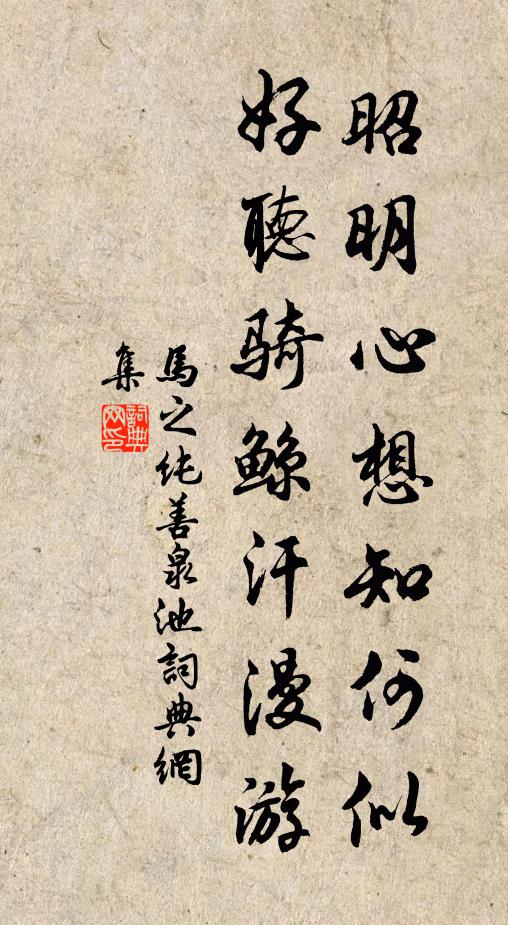 昭明心想知何似
好聽骑鲸汗漫游
馬之纯善泉池詞典網
集
詞典
网印